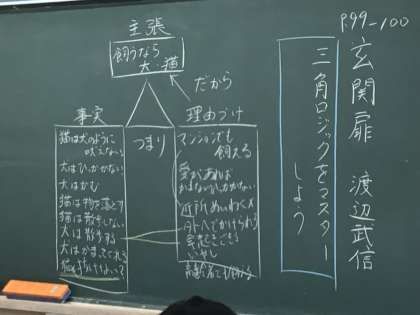 P.99-100
玄関扉 渡辺武信
三角ロジックをマスター
しよう
主張
飼うなら
犬・猫
だから
事実
つまり
理由づけ
猫は犬のように
吠えない
犬はひっかかない
犬はかむ
猫は物を落とす
猫は散歩しない
犬は散歩する
マンションでも
飼える
愛があれば
近所めいわく
外へでかけられる
早起きできる
いやし